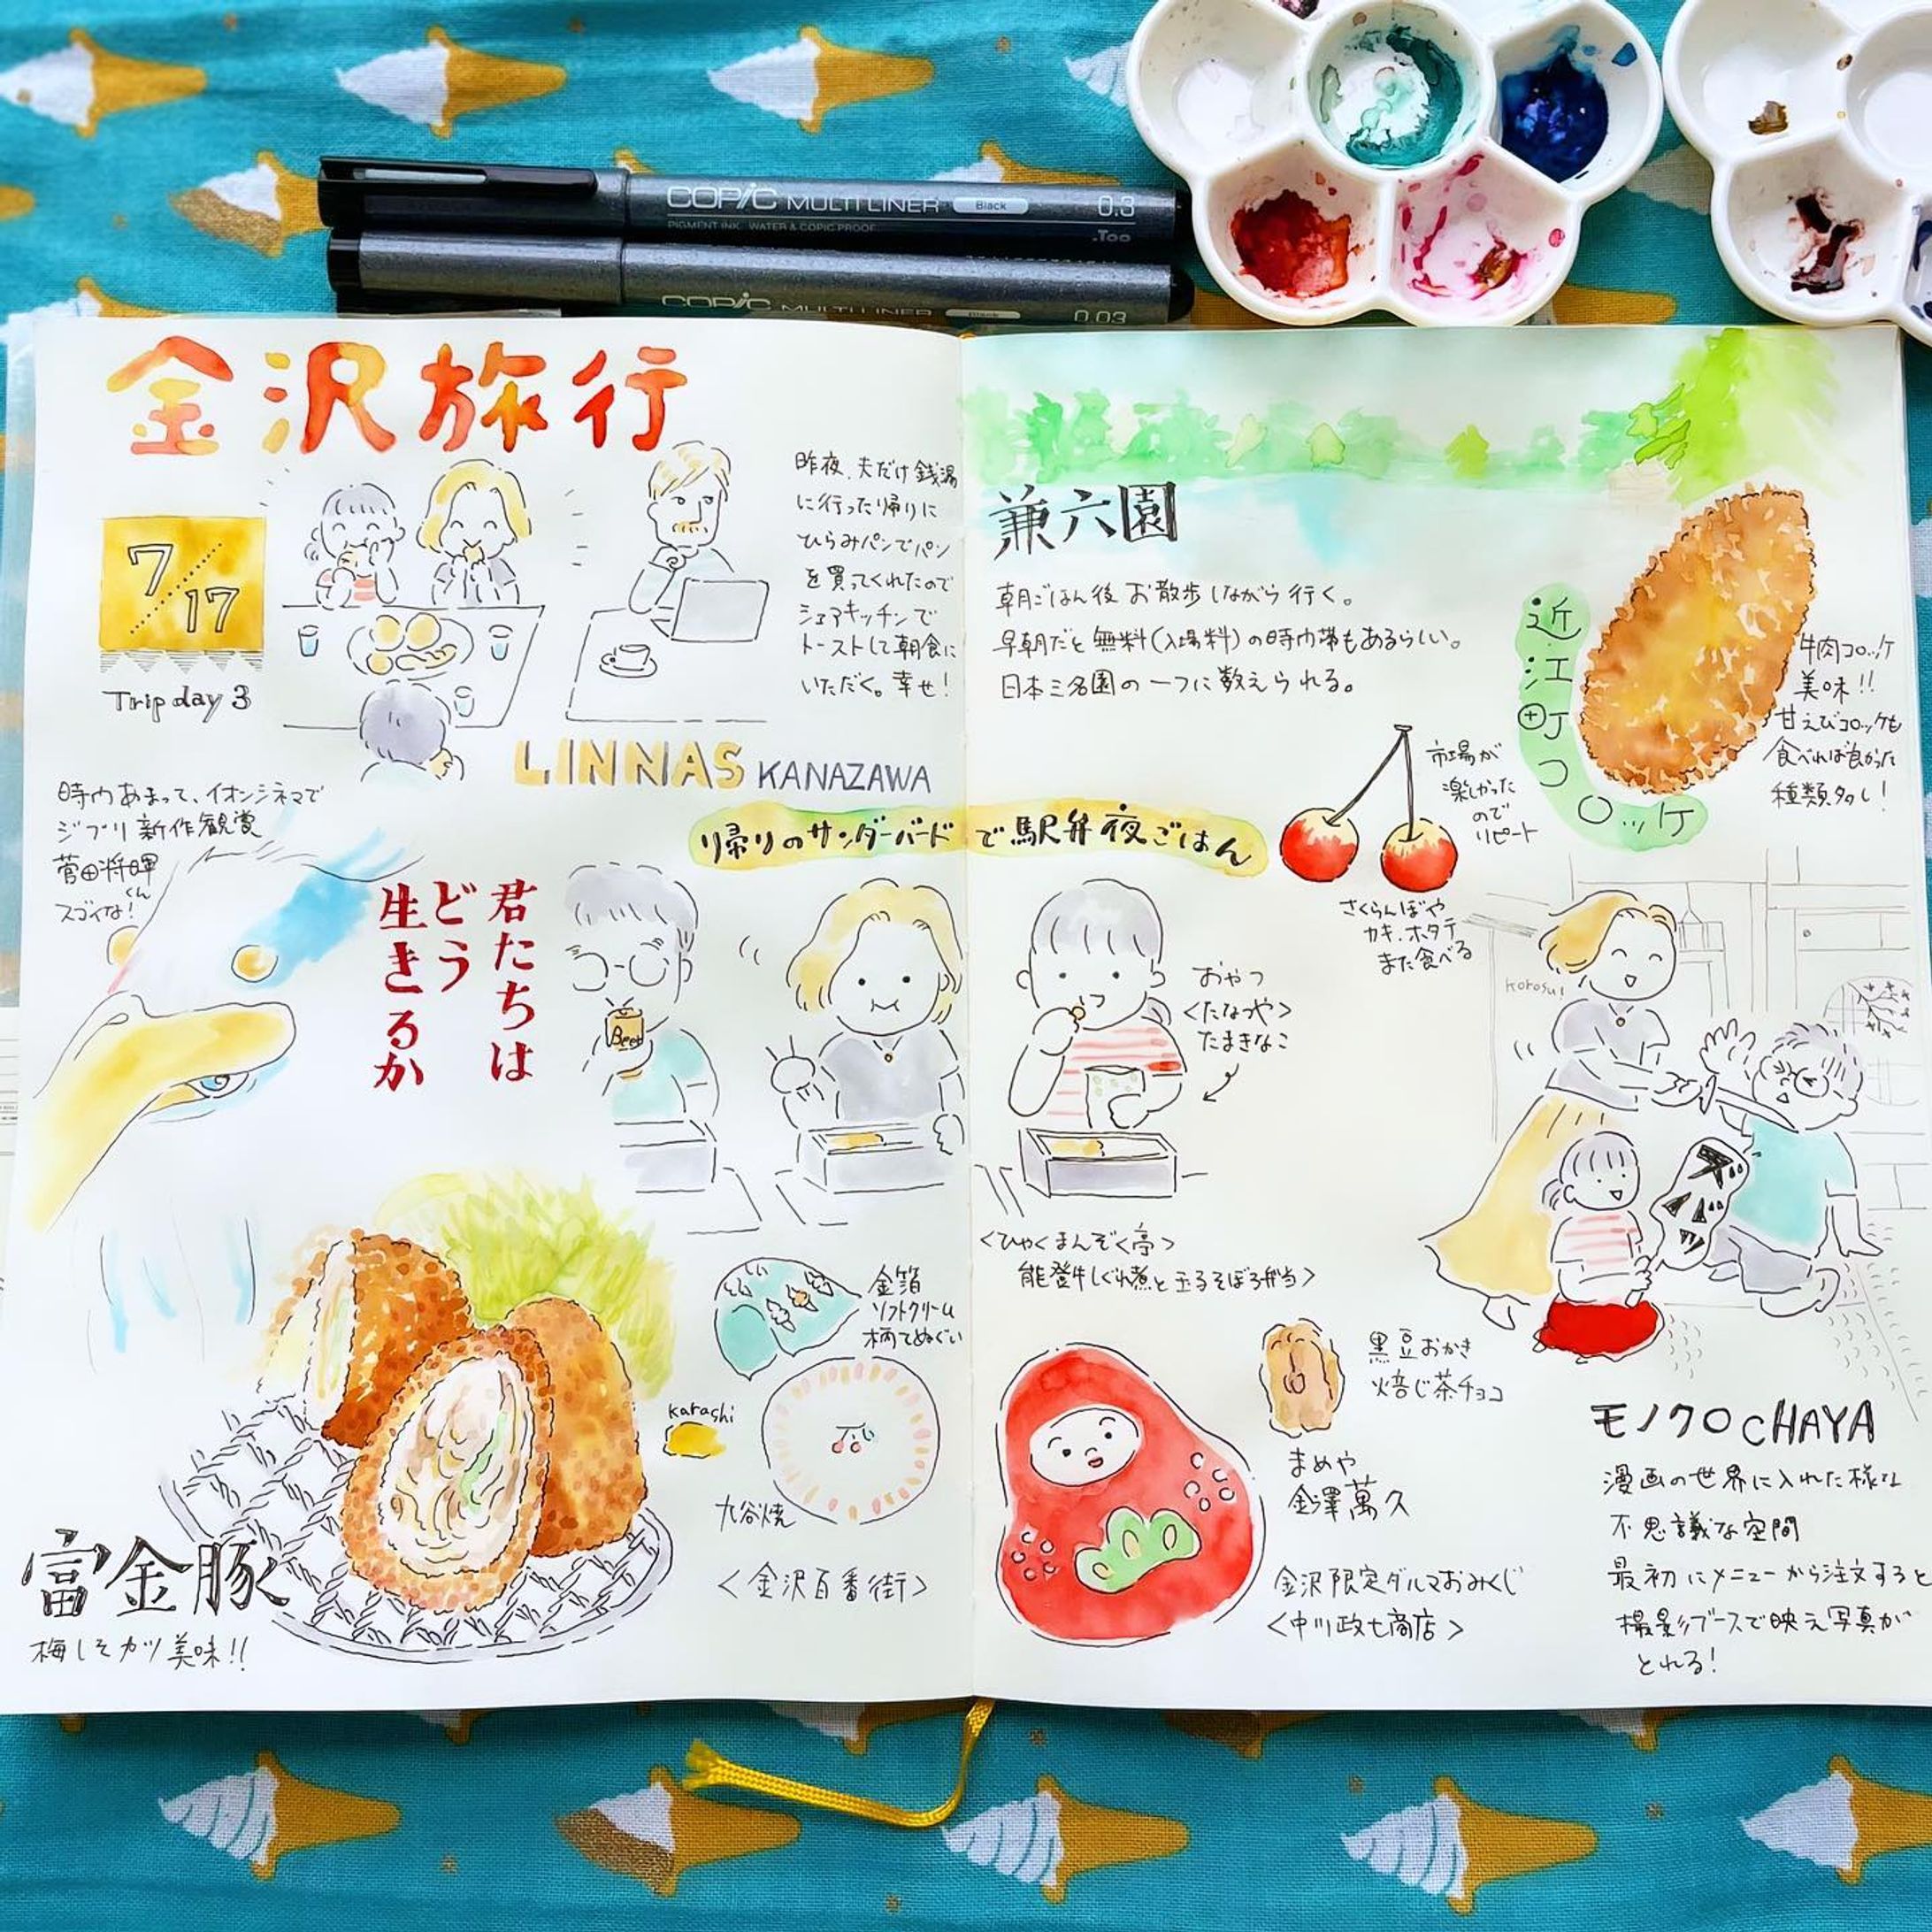 COPIC MULTILINER Black 0.3
PIGMENT INK WATER & COPIC PROOF
.Too
COPIC MULTILINER Black 0.03
金沢旅行
7/17
Trip day 3
昨夜、夫だけ銭湯
に行った帰りに
ひらみパンでパン
を買ってくれたので
シェアキッチンで
トーストして朝食に
いただく。幸せ!
LINNAS KANAZAWA
時間あまって、イオンシネマで
ジブリ新作観賞
菅田将暉
くん
スゴイな!
君たちは
どう
生きるか
帰りのサンダーバードで駅弁夜ごはん
Beer
金箔
ソフトクリーム
柄てぬぐい
karashi
九谷焼
<金沢百番街>
富金豚
梅しそカツ美味!!
兼六園
朝ごはん後お散歩しながら行く。
早朝だと無料(入場料)の時間帯もあるらしい。
日本三名園の一つに数えられる。
近江町コロッケ
牛肉コロッケ
美味!!
甘えびコロッケも
食べれば良かった
種類多し!
市場が
楽しかった
ので
リピート
さくらんぼや
カキ、ホタテ
また食べる
おやつ
<たなつや>
たまきなこ
<ひゃくまんぞく亭>
能登牛しぐれ煮と玉るそぼろ弁当>
korosu!
スパッ
黒豆おかき
焙じ茶チョコ
まめや
金澤萬久
金沢限定ダルマおみくじ
<中川政七商店>
モノクロCHAYA
漫画の世界に入れた様な
不思議な空間
最初にメニューから注文すると
撮影ブースで映え写真が
とれる!